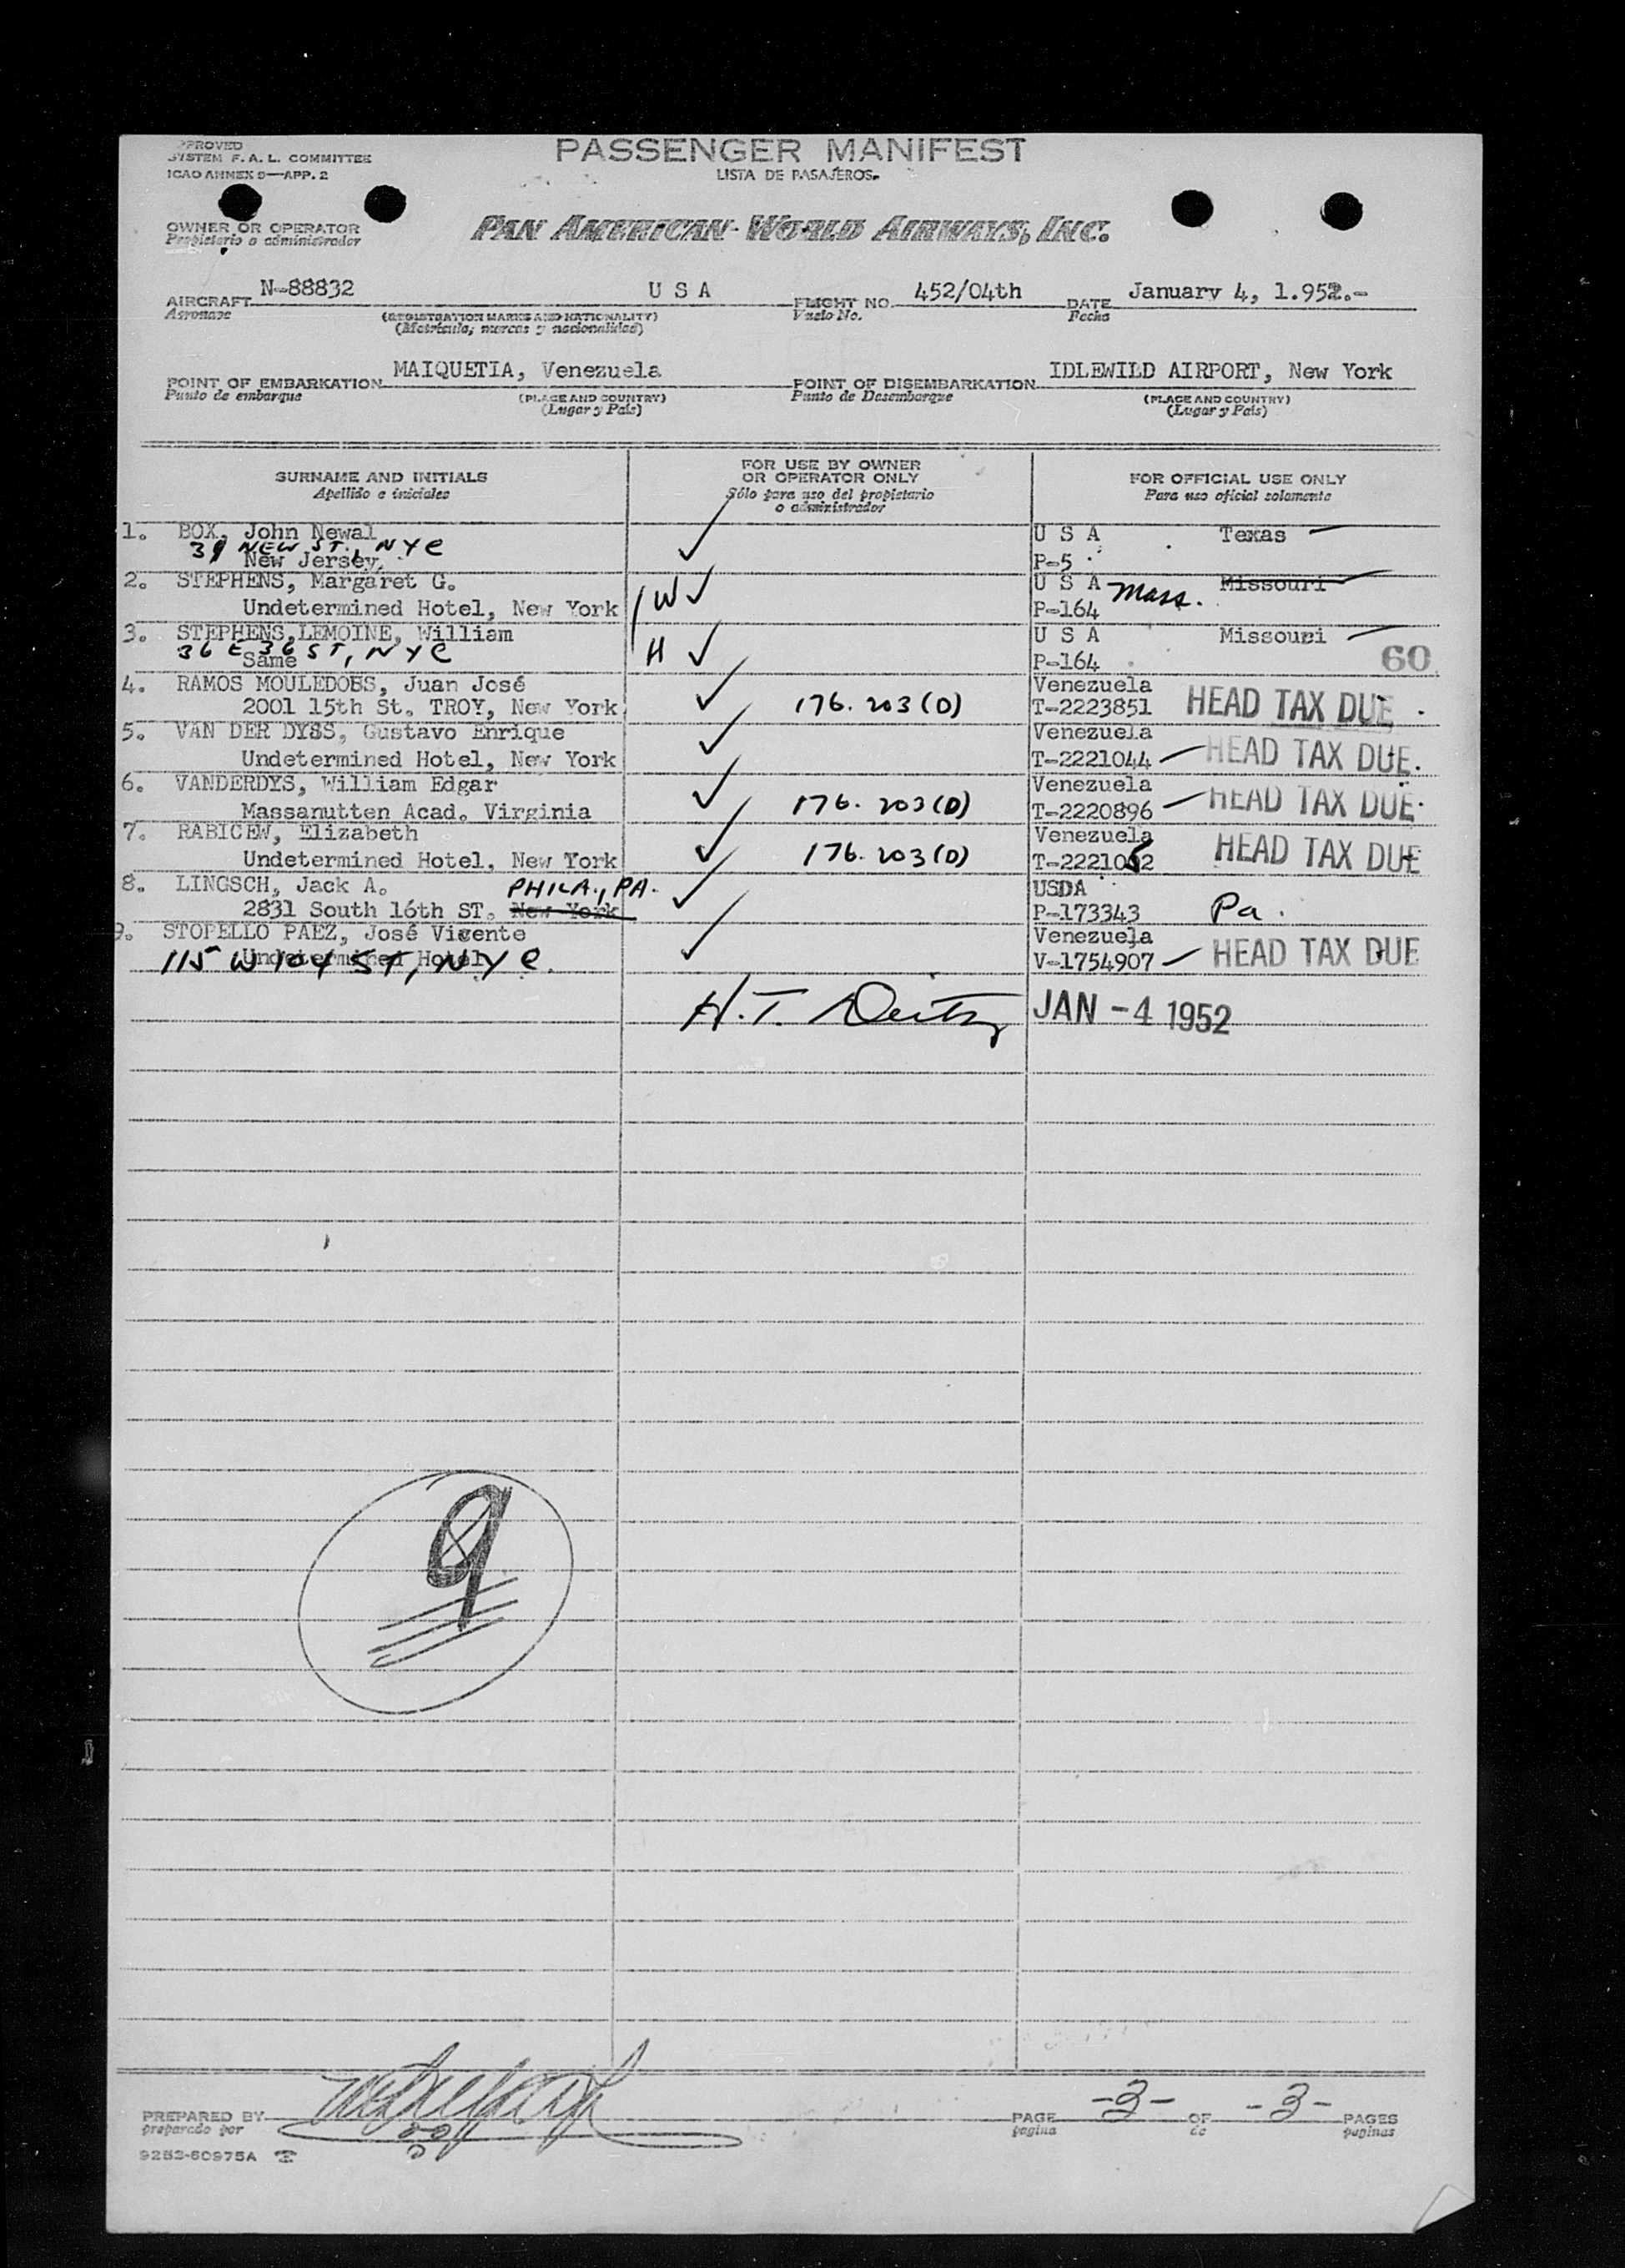 PROVED
SYSTEM F. A. L. COMMITTEE
ICAO ANNEX 9—APP. 2
PASSENGER MANIFEST
LISTA DE PASAJEROS.
OWNER OR OPERATOR
Propietario o administrador
PAN AMERICAN WORLD AIRWAYS, INC.
AIRCRAFT N-88832 U S A FLIGHT NO. 452/04th DATE January 4, 1.952.-
Aeronave (REGISTRATION MARKS AND NATIONALITY) Vuelo No. Fecha
(Matrícula, marcas y nacionalidad)
POINT OF EMBARKATION MAIQUETIA, Venezuela POINT OF DISEMBARKATION IDLEWILD AIRPORT, New York
Punto de embarque (PLACE AND COUNTRY) Punto de Desembarque (PLACE AND COUNTRY)
(Lugar y País) (Lugar y País)
SURNAME AND INITIALS
Apellido e iniciales
FOR USE BY OWNER
OR OPERATOR ONLY
Sólo para uso del propietario
o administrador
FOR OFFICIAL USE ONLY
Para uso oficial solamente
1. BOX, John Newal U S A Texas
39 NEW ST., NYC
New Jersey. P-5
2. STEPHENS, Margaret G. U S A Missouri
Undetermined Hotel, New York W P-164 Mass.
3. STEPHENS,LEMOINE, William U S A Missouri
36 E 36 ST, NYC
Same H P-164 60
4. RAMOS MOULEDOUS, Juan José Venezuela
2001 15th St. TROY, New York 176.203(D) T-2223851 HEAD TAX DUE
5. VAN DER DYSS, Gustavo Enrique Venezuela
Undetermined Hotel, New York T-2221044 HEAD TAX DUE.
6. VANDERDYS, William Edgar Venezuela
Massanutten Acad. Virginia 176.203(D) T-2220896 HEAD TAX DUE
7. RABICEW, Elizabeth Venezuela
Undetermined Hotel, New York 176.203(D) T-2221052 HEAD TAX DUE
8. LINGSCH, Jack A. PHILA., PA. USDA
2831 South 16th ST. New York P-173343 Pa.
9. STOPELLO PAEZ, José Vicente Venezuela
Undetermined Hotel V-1754907 HEAD TAX DUE
115 W 104 ST, NYC.
H.T. JAN -4 1952
9
PREPARED BY PAGE -3- OF -3- PAGES
preparado por pagina de paginas
9252-60975A